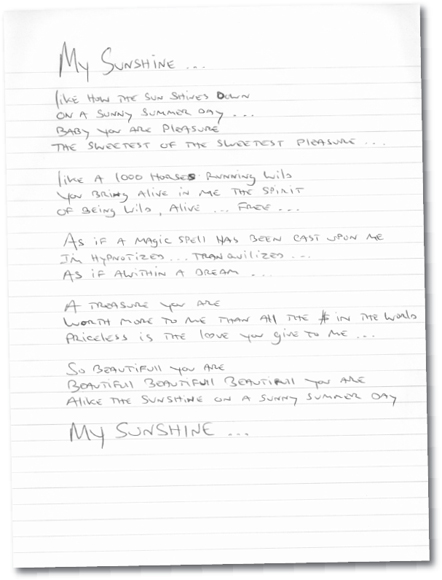 My Sunshine ...
like How the sun shines Down
on a sunny summer day ...
Baby you are pleasure
The sweetest of the sweetest pleasure ...
like a 1000 Horses running wild
you bring alive in me the spirit
of Being wild, alive ... free ...
As if a magic spell has been cast upon me
I'm Hypnotized ... tranquilized ...
as if awithin a dream ...
A treasure you are
worth more to me than all the $ in the world
priceless is the love you give to me ...
So Beautifull you are
Beautifull Beautifull Beautifull you are
Alike the sunshine on a sunny summer day
My Sunshine ...